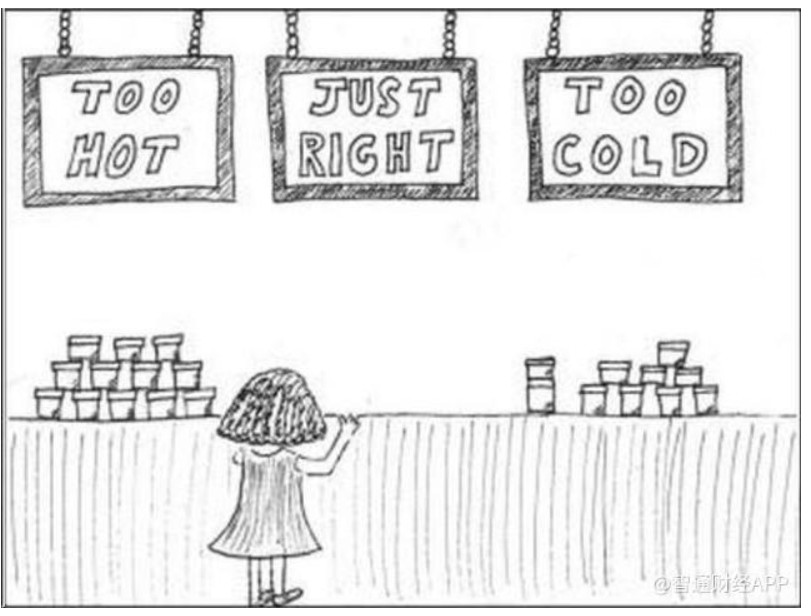 TOO
HOT
JUST
RIGHT
TOO
COLD
@智通财经APP